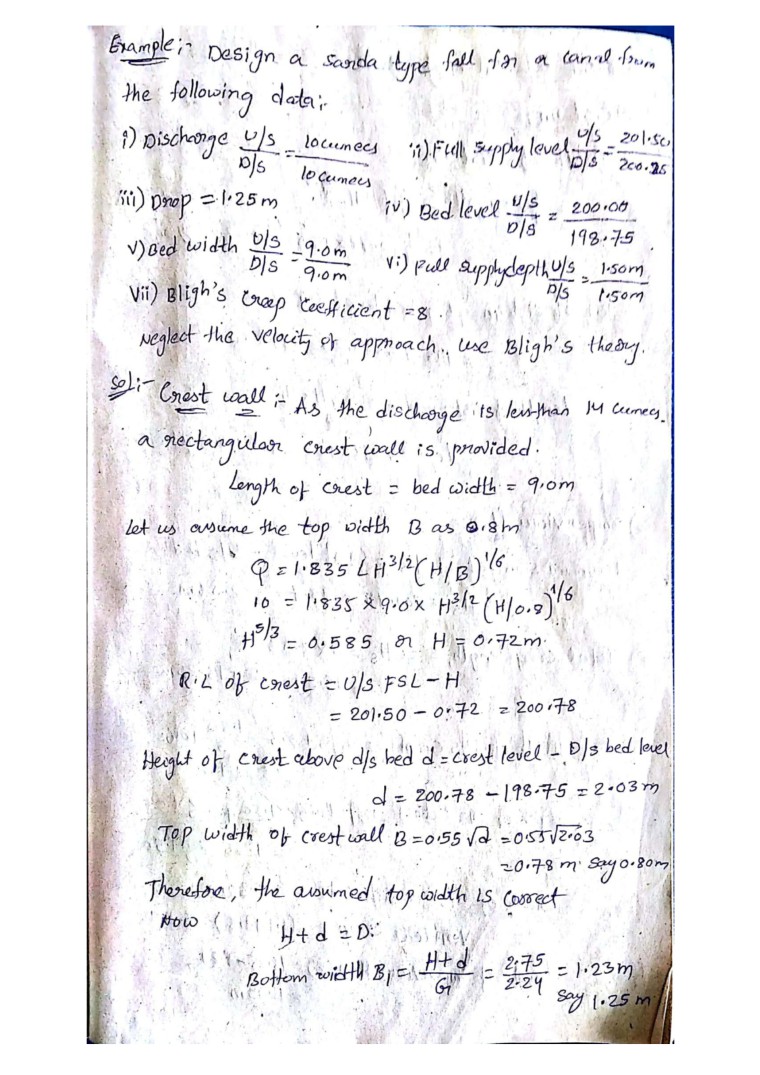 Example:- Design a sarda type fall for a canal from
the following data:-
i) Discharge U/S / D/S = 10cumecs / 10cumecs ii) Full supply level U/S / D/S = 201.50 / 200.25
iii) Drop = 1.25m iv) Bed level U/S / D/S = 200.00 / 198.75
v) Bed width U/S / D/S = 9.0m / 9.0m vi) Full supply depth U/S / D/S = 1.50m / 1.50m
vii) Bligh's creep coefficient = 8.
Neglect the velocity of approach. Use Bligh's theory.
Sol:- Crest wall :- As the discharge is less than 14 cumecs
a rectangular crest wall is provided.
Length of crest = bed width = 9.0m
Let us assume the top width B as 0.8m
Q = 1.835 LH^3/2 (H/B)^1/6
10 = 1.835 x 9.0 x H^3/2 (H/0.8)^1/6
H^5/3 = 0.585 or H = 0.72m
R.L of crest = U/S FSL - H
= 201.50 - 0.72 = 200.78
Height of crest above d/s bed d = crest level - D/s bed level
d = 200.78 - 198.75 = 2.03m
Top width of crest wall B = 0.55 √d = 0.55 √2.03
= 0.78 m say 0.80m
Therefore, the assumed top width is correct
Now
H + d = D.
Bottom width B₁ = H+d / G = 2.75 / 2.24 = 1.23m
say 1.25 m